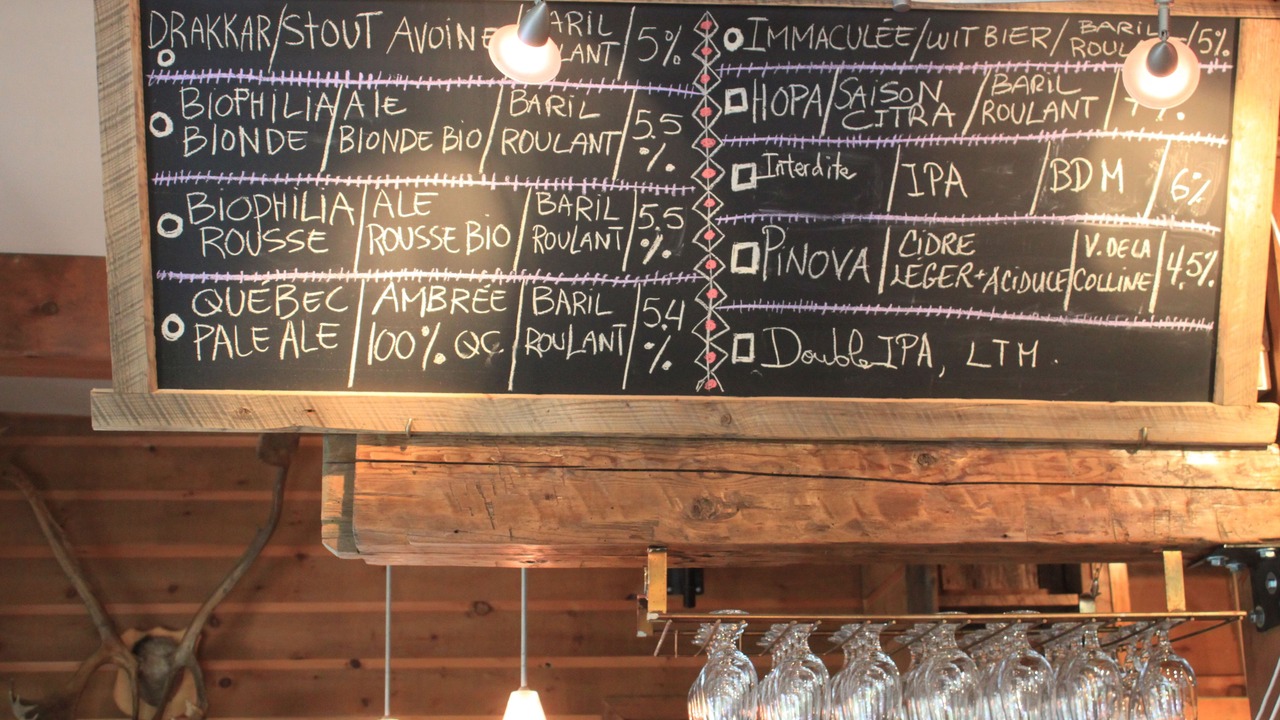 DRAKKAR/STOUT AVOINE BARIL
ROULANT/5%
BIOPHILIA/ALE BARIL 5.5
BLONDE/BLONDE BIO/ROULANT %
BIOPHILIA ALE BARIL 5.5
ROUSSE ROUSSE BIO ROULANT %
QUÉBEC AMBRÉE BARIL 5.4
PALE ALE 100% QC ROULANT %
IMMACULÉE/WITBIER/BARIL
5%
HOPA/SAISON/BARIL
CITRA ROULANT %
Interdite IPA BDM 6%
PINOVA CIDRE V. DE LA 4.5%
LÉGER+ACIDULÉ COLLINE
Double IPA, LTM.